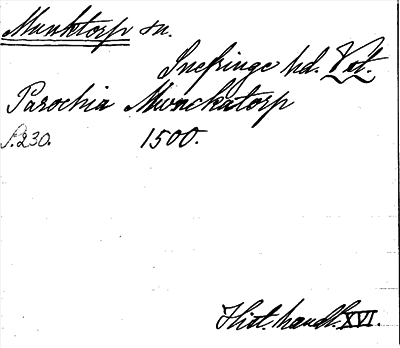 Munktorp sn.
Snefringe hd. Vstl.
Parochia Munckatorp
S.230. 1500.
Hist. handl. XVI.